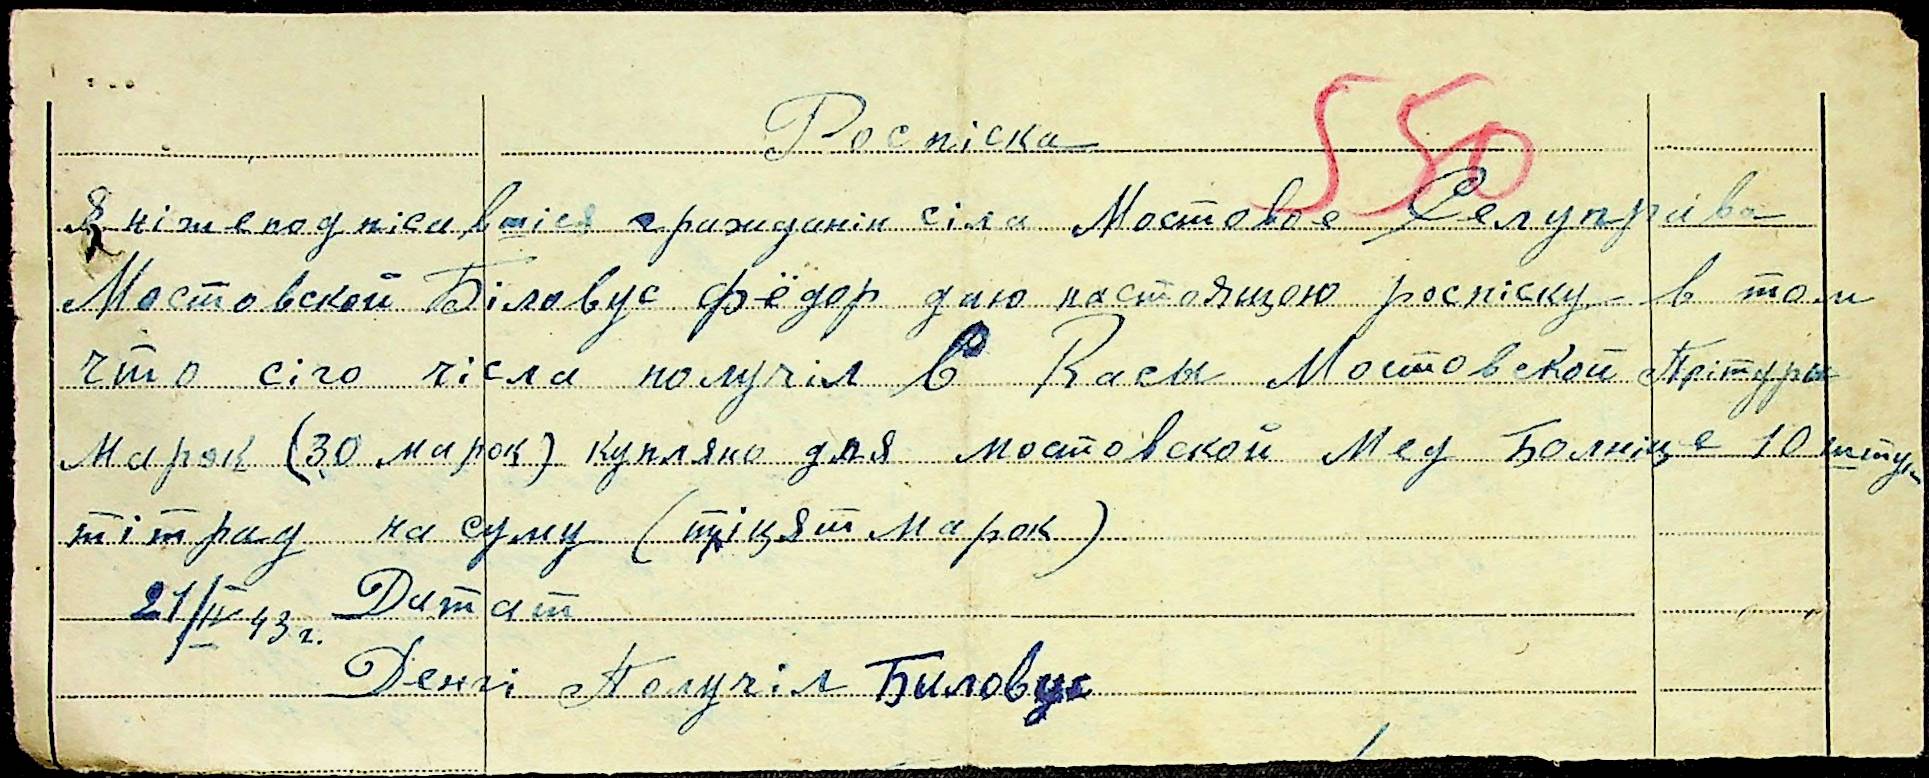 550
Роспіска
Я ніжеподпісавшіся гражданін сіла Мостовое Селуправа
Мостовской Біловус Фёдор даю настоящою роспіску в том
что сіго чісла получіл в Касы Мостовской Прітуры
марок (30 марок) купляно для мостовской Мед Болніце 10 штук
тітрад на суму (тріцят марок)
21/IV 43 г. Датат
Денгі Получіл Биловус